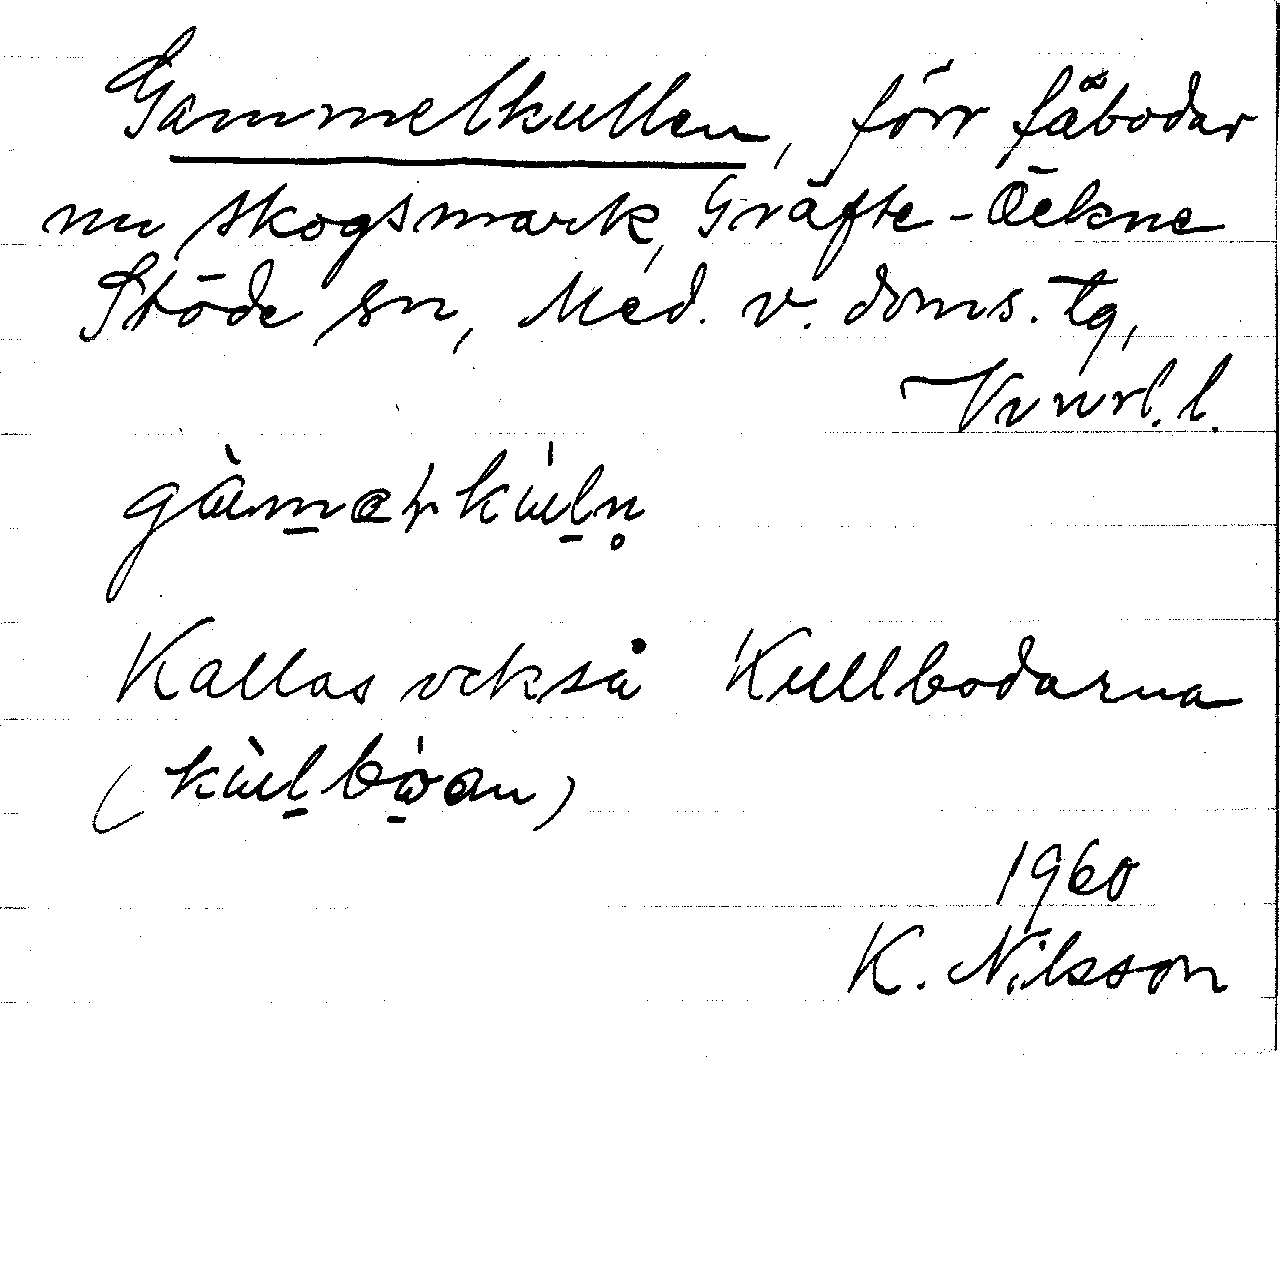 Gammelkullen, förr fäbodar
nu skogsmark, Gräfte-Öckne
Stöde sn, Med. v. doms. tg,
Vnrl. l.
gàməɽkùln̥
Kallas också Kullbodarna
(kùlbòan)
1960
K. Nilsson